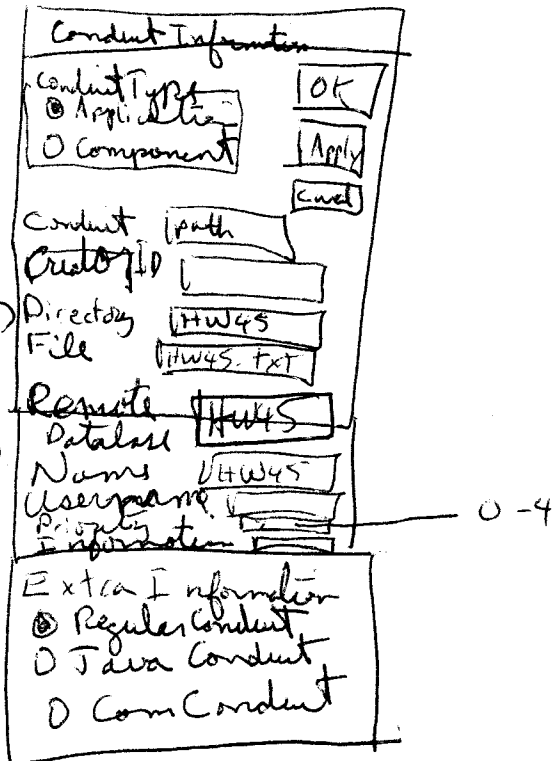 Conduit Information
Conduit Type
Application OK
Component Apply
Cancel
Conduit path
Creator ID
Directory HW45
File HW45.txt
Remote HW45
Database
Name HW45
Username
Priority 0-4
Information
Extra Information
Regular Conduit
Java Conduit
Com Conduit